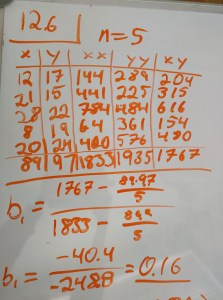 12.6
n=5
x y xx yy xy
12 17 144 289 204
21 15 441 225 315
28 22 784 484 616
8 19 64 361 154
20 24 400 576 490
89 97 1833 1935 1767
b₁ = (1767 - 89.97/5) / (1833 - 89²/5)
b₁ = -40.4 / -2488 = 0.16